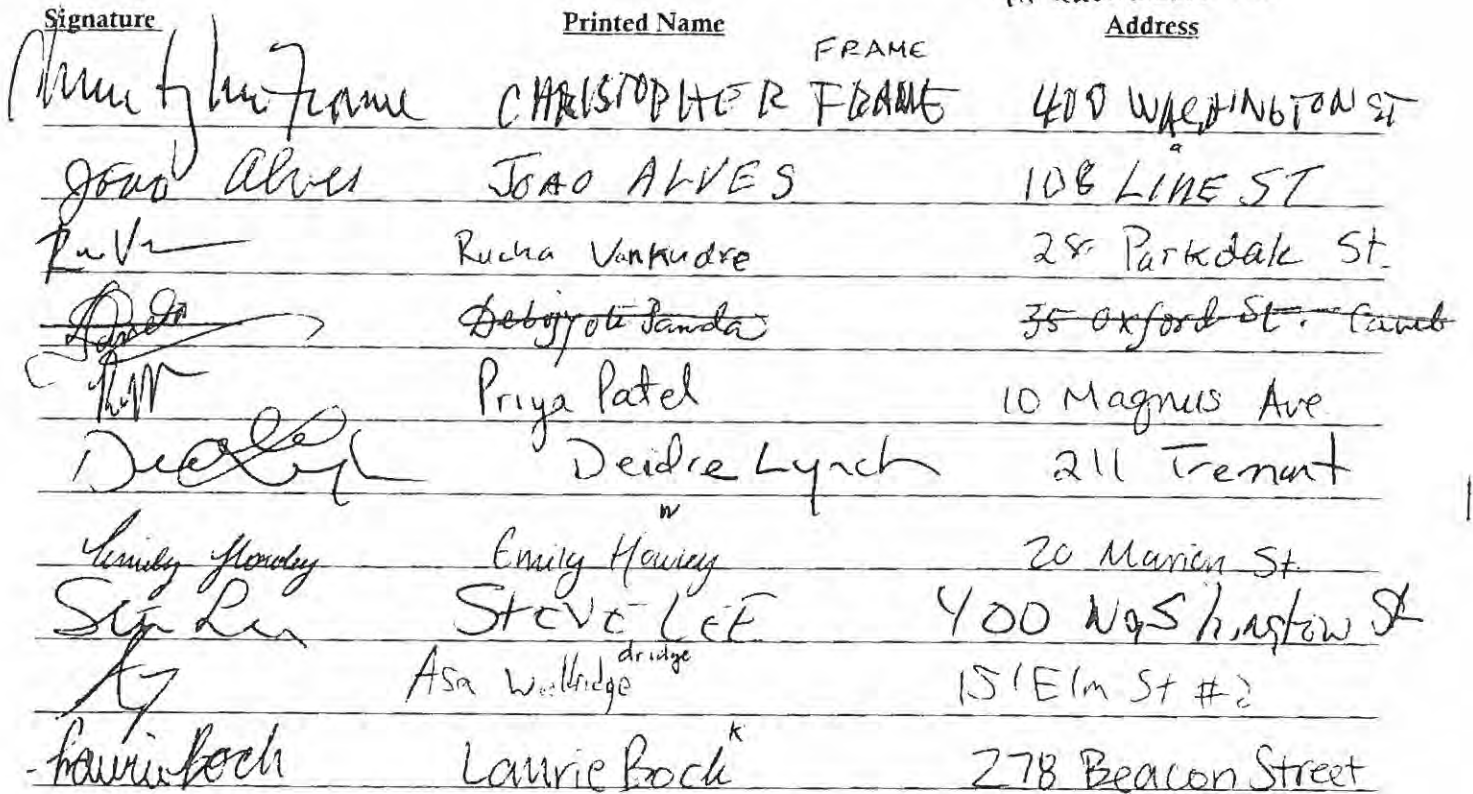 Signature Printed Name Address
FRAME
Frame CHRISTOPHER FRAME 400 WASHINGTON ST
a
João Alves JOAO ALVES 108 LINE ST
Rucha Vankudre 28 Parkdale St.
Debojyoti Panda 35 Oxford St. Camb
Priya Patel 10 Magnus Ave
Deidre Lynch 211 Tremont
w
Emily Howley Emily Howley 20 Marion St.
STEVE LEE 400 WaShington St
dridge
Asa 151 Elm St #2
k
Laurie Bock Laurie Bock 278 Beacon Street